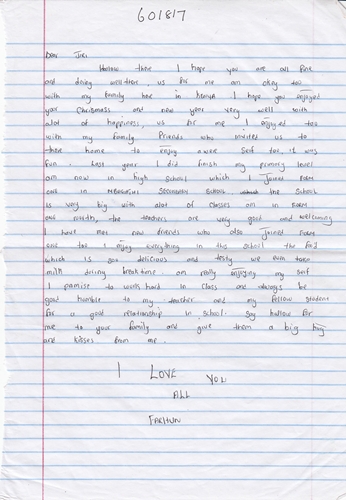 601817
Dear Jiri
Hallow there I hope you are all fine
and doing well there, us for me am okay too
with my family here in KENYA I hope you enjoyed
your Christmass and new year very well with
alot of happiness, us for me I enjoyed too
with my family Friends who invited us to
there home to enjoy a were self too it was
fun. Last year I did finish my primary level
am now in high school which I Joined FORM
one in SECONDARY SCHOOL the school
is very big with alot of classes am in FORM
one the teachers are very good and wellcoming
I have met new Friends who also joined FORM
one too I enjoy everything in this school the food
which is soo delicious and testy we even take
milk during break time am really enjoying my self
I promise to work hard in class and always be
good humble to my teacher and my fellow student
for a good relationship in school. Say hallow for
me to your family and give them a big hug
and kisses from me.
I LOVE YOU
ALL
FARHUN